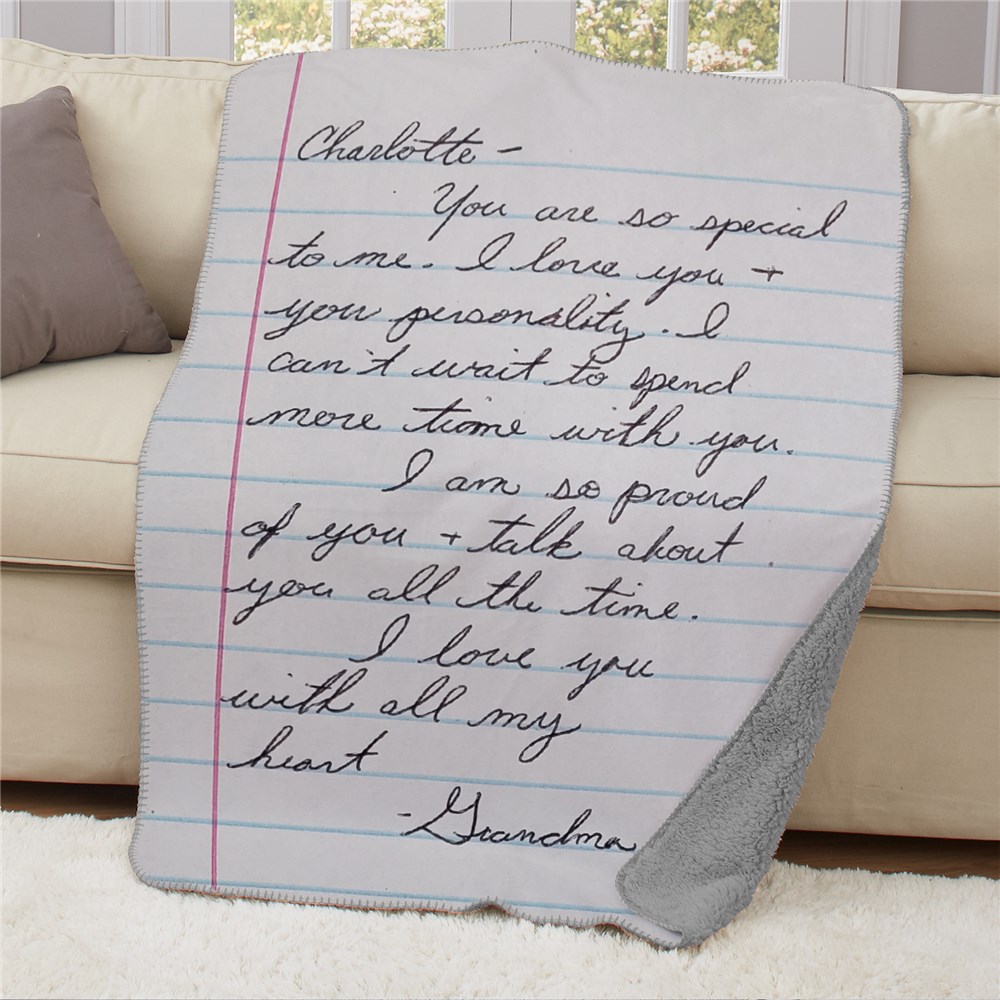 Charlotte -
You are so special
to me. I love you +
your personality. I
can't wait to spend
more time with you.
I am so proud
of you + talk about
you all the time.
I love you
with all my
heart
-Grandma